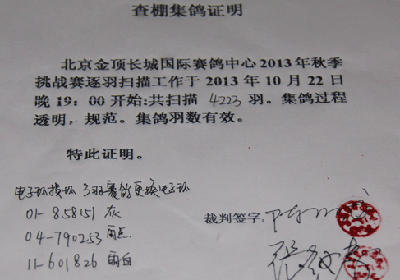 查棚集鸽证明
北京金顶长城国际赛鸽中心2013年秋季
挑战赛逐羽扫描工作于2013年10月22日
晚19:00开始:共扫描 4223 羽。集鸽过程
透明,规范。集鸽羽数有效。
特此证明。
电子环 3羽赛鸽更换电子环
01-858151 灰
裁判签字:
04-790253 雨点
11-601826 雨白